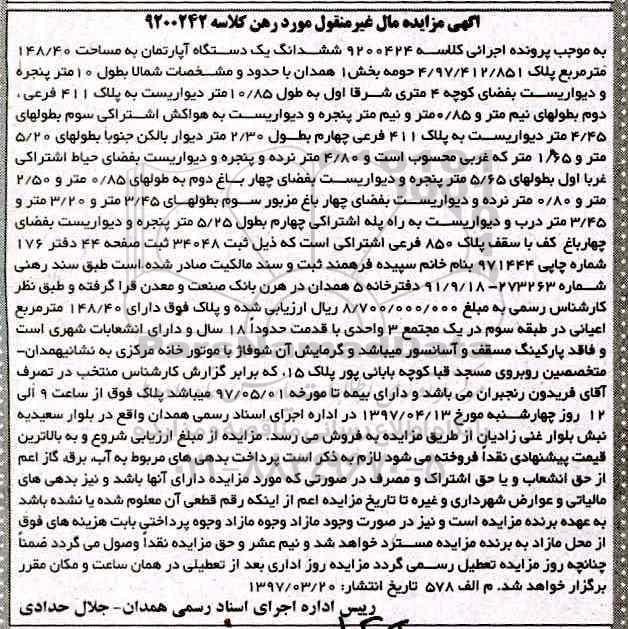 آگهی مزایده مال غیرمنقول مورد رهن کلاسه ۹۲۰۰۲۴۲
به موجب پرونده اجرائی کلاسه ۹۲۰۰۴۲۴ ششدانگ یک دستگاه آپارتمان به مساحت ۱۴۸/۴۰
مترمربع پلاک ۴/۹۷/۴۱۲/۸۵۱ حومه بخش۱ همدان با حدود و مشخصات شمالا بطول ۱۰متر پنجره
و دیواریست بفضای کوچه ۴ متری شرقا اول به طول ۱۰/۸۵متر دیواریست به پلاک ۴۱۱ فرعی،
دوم بطولهای نیم متر و ۰/۸۵متر و نیم متر پنجره و دیواریست به هواکش اشتراکی سوم بطولهای
۴/۴۵ متر دیواریست به پلاک ۴۱۱ فرعی چهارم بطول ۲/۳۰ متر دیوار بالکن جنوبا بطولهای ۵/۲۰
متر و ۱/۶۵ متر که غربی محسوب است و ۴/۸۰ متر نرده و پنجره و دیواریست بفضای حیاط اشتراکی
غربا اول بطولهای ۵/۶۵ متر پنجره و دیواریست بفضای چهار باغ دوم به طولهای ۰/۸۵ متر و ۲/۵۰
متر و ۰/۸۰ متر نرده و دیواریست بفضای چهار باغ مزبور سوم بطولهای ۳/۴۵ متر و ۳/۲۰ متر و
۳/۴۵ متر درب و دیواریست به راه پله اشتراکی چهارم بطول ۵/۲۵ متر پنجره و دیواریست بفضای
چهارباغ کف با سقف پلاک ۸۵۰ فرعی اشتراکی است که ذیل ثبت ۳۴۰۴۸ ثبت صفحه ۴۴ دفتر ۱۷۶
شماره چاپی ۹۷۱۴۴۴ بنام خانم سپیده فرهمند ثبت و سند مالکیت صادر شده است طبق سند رهنی
شماره ۲۷۳۲۶۳- ۹۱/۹/۱۸ دفترخانه ۵ همدان در هرن بانک صنعت و معدن قرا گرفته و طبق نظر
کارشناس رسمی به مبلغ ۸/۷۰۰/۰۰۰/۰۰۰ ریال ارزیابی شده و پلاک فوق دارای ۱۴۸/۴۰ مترمربع
اعیانی در طبقه سوم در یک مجتمع ۳ واحدی با قدمت حدوداً ۱۸ سال و دارای انشعابات شهری است
و فاقد پارکینگ مسقف و آسانسور میباشد و گرمایش آن شوفاژ با موتور خانه مرکزی به نشانیهمدان-
متخصصین روبروی مسجد قبا کوچه بابائی پور پلاک ۱۵، که برابر گزارش کارشناس منتخب در تصرف
آقای فریدون رنجبران می باشد و دارای بیمه تا مورخه ۹۷/۰۵/۰۱ میباشد پلاک فوق از ساعت ۹ الی
۱۲ روز چهارشنبه مورخ ۱۳۹۷/۰۴/۱۳ در اداره اجرای اسناد رسمی همدان واقع در بلوار سعیدیه
نبش بلوار غنی زادیان از طریق مزایده به فروش می رسد. مزایده از مبلغ ارزیابی شروع و به بالاترین
قیمت پیشنهادی نقداً فروخته می شود لازم به ذکر است پرداخت بدهی های مربوط به آب، برق، گاز اعم
از حق انشعاب و یا حق اشتراک و مصرف در صورتی که مورد مزایده دارای آنها باشد و نیز بدهی های
مالیاتی و عوارض شهرداری و غیره تا تاریخ مزایده اعم از اینکه رقم قطعی آن معلوم شده یا نشده باشد
به عهده برنده مزایده است و نیز در صورت وجود مازاد وجوه مازاد وجوه پرداختی بابت هزینه های فوق
از محل مازاد به برنده مزایده مسترد خواهد شد و نیم عشر و حق مزایده نقداً وصول می گردد ضمناً
چنانچه روز مزایده تعطیل رسمی گردد مزایده روز اداری بعد از تعطیلی در همان ساعت و مکان مقرر
برگزار خواهد شد. م الف ۵۷۸ تاریخ انتشار: ۱۳۹۷/۰۳/۲۰
رییس اداره اجرای اسناد رسمی همدان- جلال حدادی